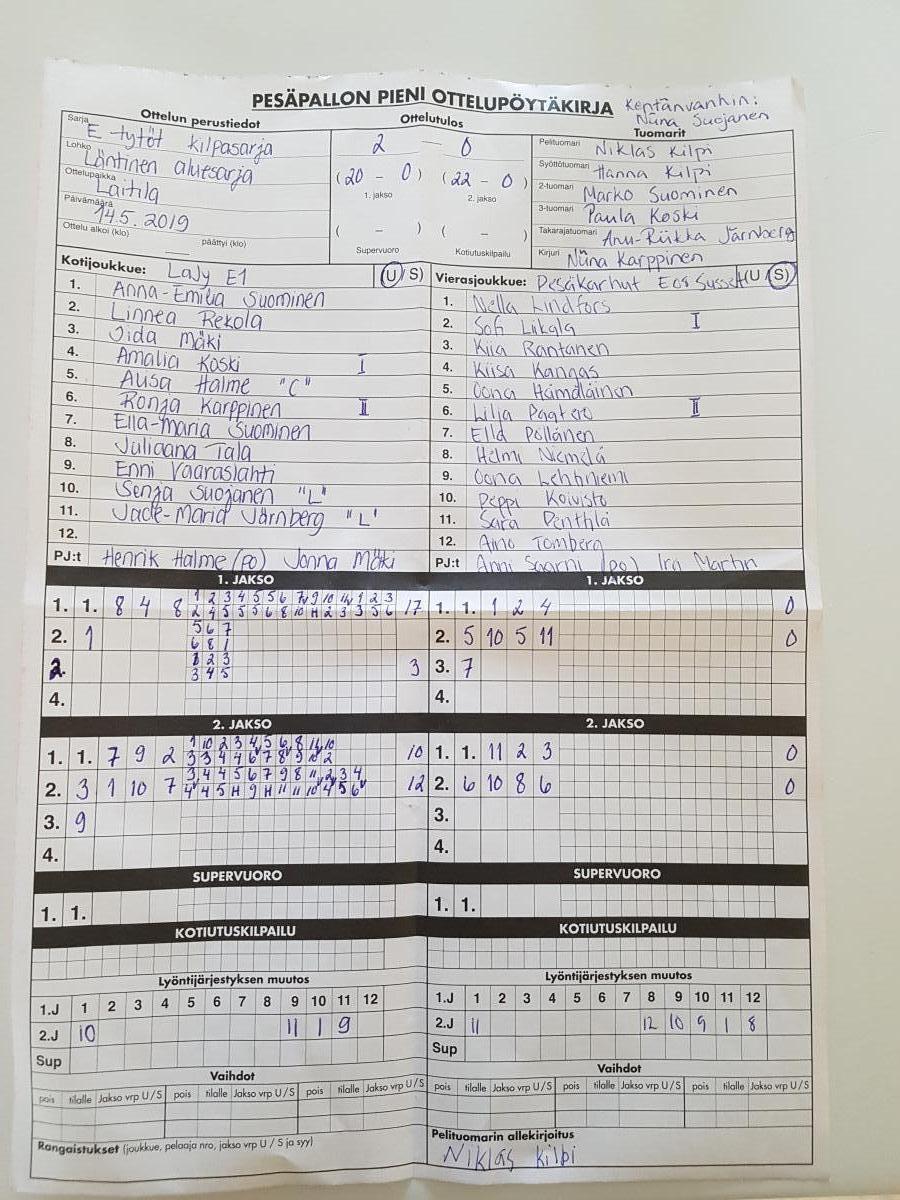 PESÄPALLON PIENI OTTELUPÖYTÄKIRJA
Kentänvanhin:
Niina Suojanen
Ottelun perustiedot
Ottelutulos
Tuomarit
Sarja E tytöt kilpasarja
Lohko Läntinen aluesarja
Ottelupaikka Laitila
Päivämäärä 14.5. 2019
Ottelu alkoi (klo) päättyi (klo)
2 — 0
(20 - 0) (22 - 0)
1. jakso 2. jakso
( - ) ( - )
Supervuoro Kotiutuskilpailu
Pelituomari Niklas Kilpi
Syöttötuomari Hanna Kilpi
2-tuomari Marko Suominen
3-tuomari Paula Koski
Takarajatuomari Anu-Riikka Järnberg
Kirjuri Niina Karppinen
Kotijoukkue: LaJy E1 (U/S)
1. Anna-Emilia Suominen
2. Linnea Rekola
3. Iida Mäki
4. Amalia Koski I
5. Alisa Halme "C"
6. Ronja Karppinen II
7. Ella-Maria Suominen
8. Juliaana Tala
9. Enni Vaaraslahti
10. Senja Suojanen "L"
11. Jade-Maria Järnberg "L"
12.
PJ:t Henrik Halme (po) Jonna Mäki
Vierasjoukkue: Pesäkarhut (U/S)
1. Nella Lindfors
2. Sofi Liikala I
3. Kiia Rantanen
4. Kiisa Kangas
5. Oona Hämäläinen
6. Lilja Paatero II
7. Ella Pöllänen
8. Helmi Niemelä
9. Oona Lehtiniemi
10. Peppi Koivisto
11. Sara Penttilä
12. Aino Tomberg
PJ:t Anni Saarni (po) Ira Martin
1. JAKSO
1. 1. 8 4 8 17
2. 1
5 6 7
6 8 1
2. 3
1 2 3
3 4 5
4.
1. JAKSO
1. 1. 1 2 4 0
2. 5 10 5 11 0
3. 7
4.
2. JAKSO
1. 1. 7 9 2 10
2. 3 1 10 7 12
3. 9
4.
2. JAKSO
1. 1. 11 2 3 0
2. 6 10 8 6 0
3.
4.
SUPERVUORO
1. 1.
SUPERVUORO
1. 1.
KOTIUTUSKILPAILU
KOTIUTUSKILPAILU
Lyöntijärjestyksen muutos
1.J 1 2 3 4 5 6 7 8 9 10 11 12
2.J 10 11 1 9
Sup
Lyöntijärjestyksen muutos
1.J 1 2 3 4 5 6 7 8 9 10 11 12
2.J 11 12 10 9 1 8
Sup
Vaihdot
pois tilalle Jakso vrp U/S pois tilalle Jakso vrp U/S pois tilalle Jakso vrp U/S
Vaihdot
pois tilalle Jakso vrp U/S pois tilalle Jakso vrp U/S pois tilalle Jakso vrp U/S
Rangaistukset (joukkue, pelaaja nro, jakso vrp U / S ja syy)
Pelituomarin allekirjoitus
Niklas Kilpi